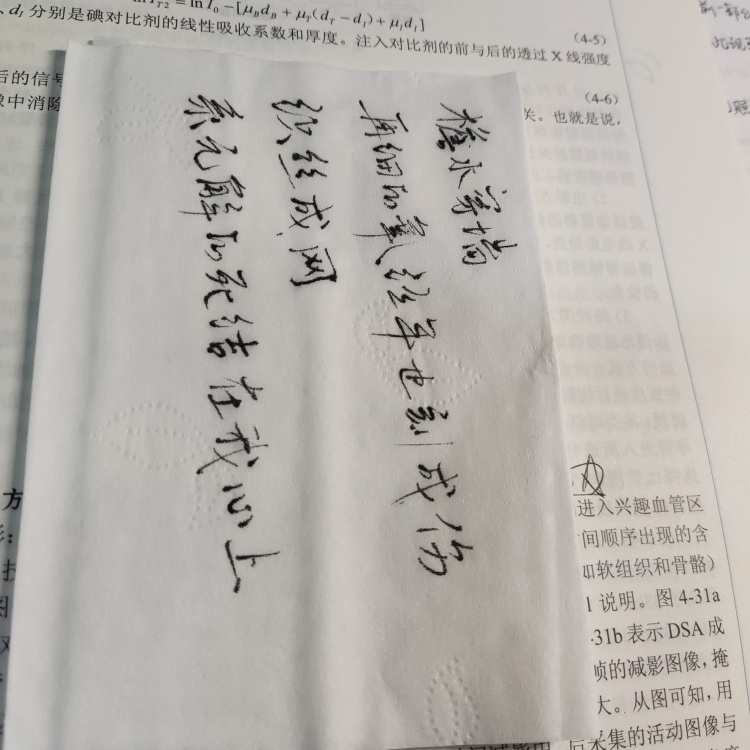 檐水穿墙
再细的氧经年也刻成伤
织丝成网
系无解的死结在我心上
、d_I 分别是碘对比剂的线性吸收系数和厚度。注入对比剂的前与后的透过 X 线强度
(4-5)
后的信号
(4-6)
像中消除
关。也就是说,
进入兴趣血管区
间顺序出现的含
如软组织和骨骼)
1 说明。图 4-31a
-31b 表示 DSA 成
帧的减影图像,掩
大。从图可知,用
后采集的活动图像与
方